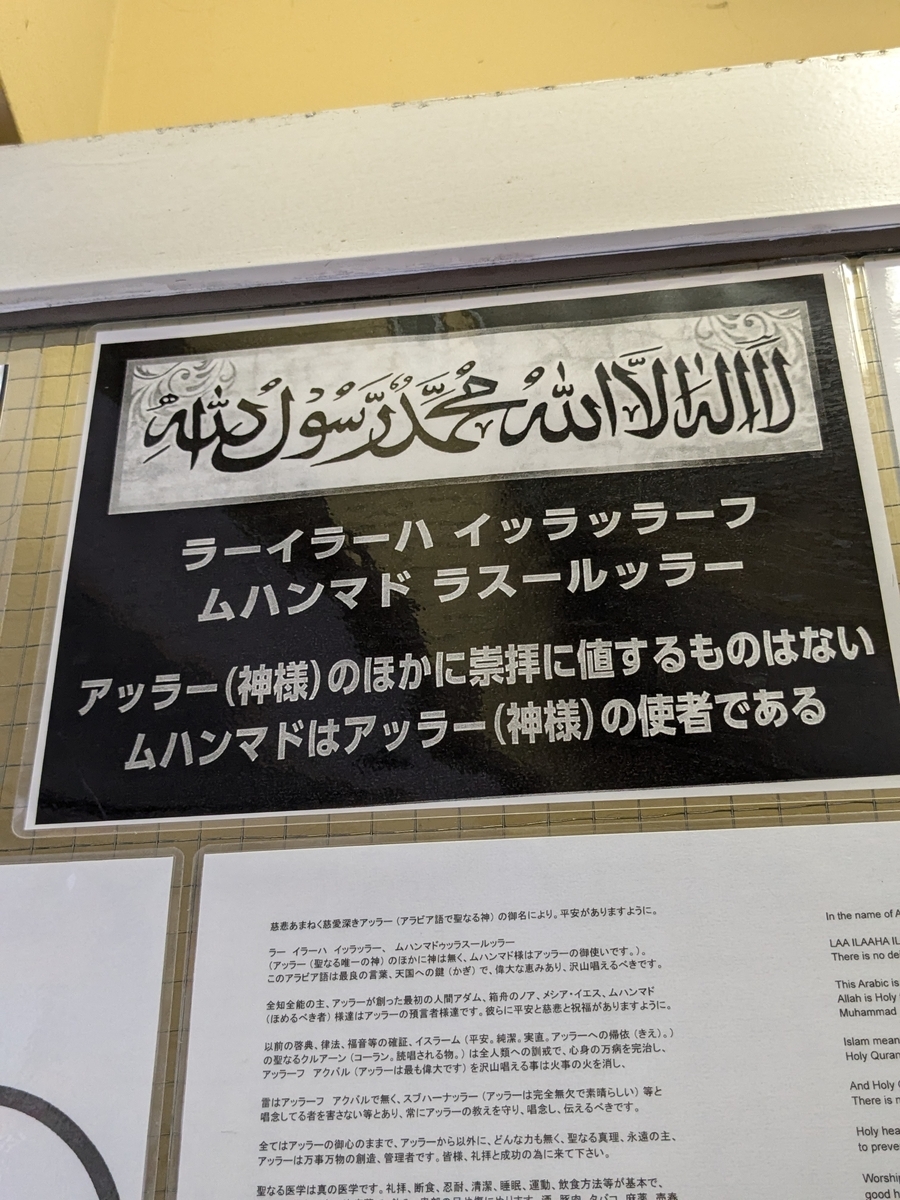 لَا إِلٰهَ إِلَّا اللهُ مُحَمَّدٌ رَّسُوْلُ اللهِ
ラーイラーハ イッラッラーフ
ムハンマド ラスールッラー
アッラー(神様)のほかに崇拝に値するものはない
ムハンマドはアッラー(神様)の使者である
慈悲あまねく慈愛深きアッラー(アラビア語で聖なる神)の御名により。平安がありますように。
ラー イラーハ イッラッラー、 ムハンマドゥッラスールッラー
(アッラー(聖なる唯一の神)のほかに神は無く、ムハンマド様はアッラーの御使いです。)。
このアラビア語は最良の言葉、天国への鍵(かぎ)で、偉大な恵みあり、沢山唱えるべきです。
全知全能の主、アッラーが創った最初の人間アダム、箱舟のノア、メシア・イエス、ムハンマド
(ほめるべき者)様達はアッラーの預言者様達です。彼らに平安と慈悲と祝福がありますように。
以前の啓典、律法、福音等の確証、イスラーム(平安。純潔。実直。アッラーへの帰依(きえ)。)
の聖なるクルアーン(コーラン。読唱される物。)は全人類への訓戒で、心身の万病を完治し、
アッラーフ アクバル(アッラーは最も偉大です)を沢山唱える事は火事の火を消し、
雷はアッラーフ アクバルで無く、スブハーナッラー(アッラーは完全無欠で素晴らしい)等と
唱念してる者を害さない等とあり、常にアッラーの教えを守り、唱念し、伝えるべきです。
全てはアッラーの御心のままで、アッラーから以外に、どんな力も無く、聖なる真理、永遠の主、
アッラーは万事万物の創造、管理者です。皆様、礼拝と成功の為に来て下さい。
聖なる医学は真の医学です。礼拝、断食、忍耐、清潔、睡眠、運動、飲食方法等が基本で、
In the name of A
LAA ILAAHA IL
There is no de
This Arabic is
Allah is Holy
Muhammad
Islam mean
Holy Quran
And Holy
There is n
Holy hea
to preve
Worship
good h